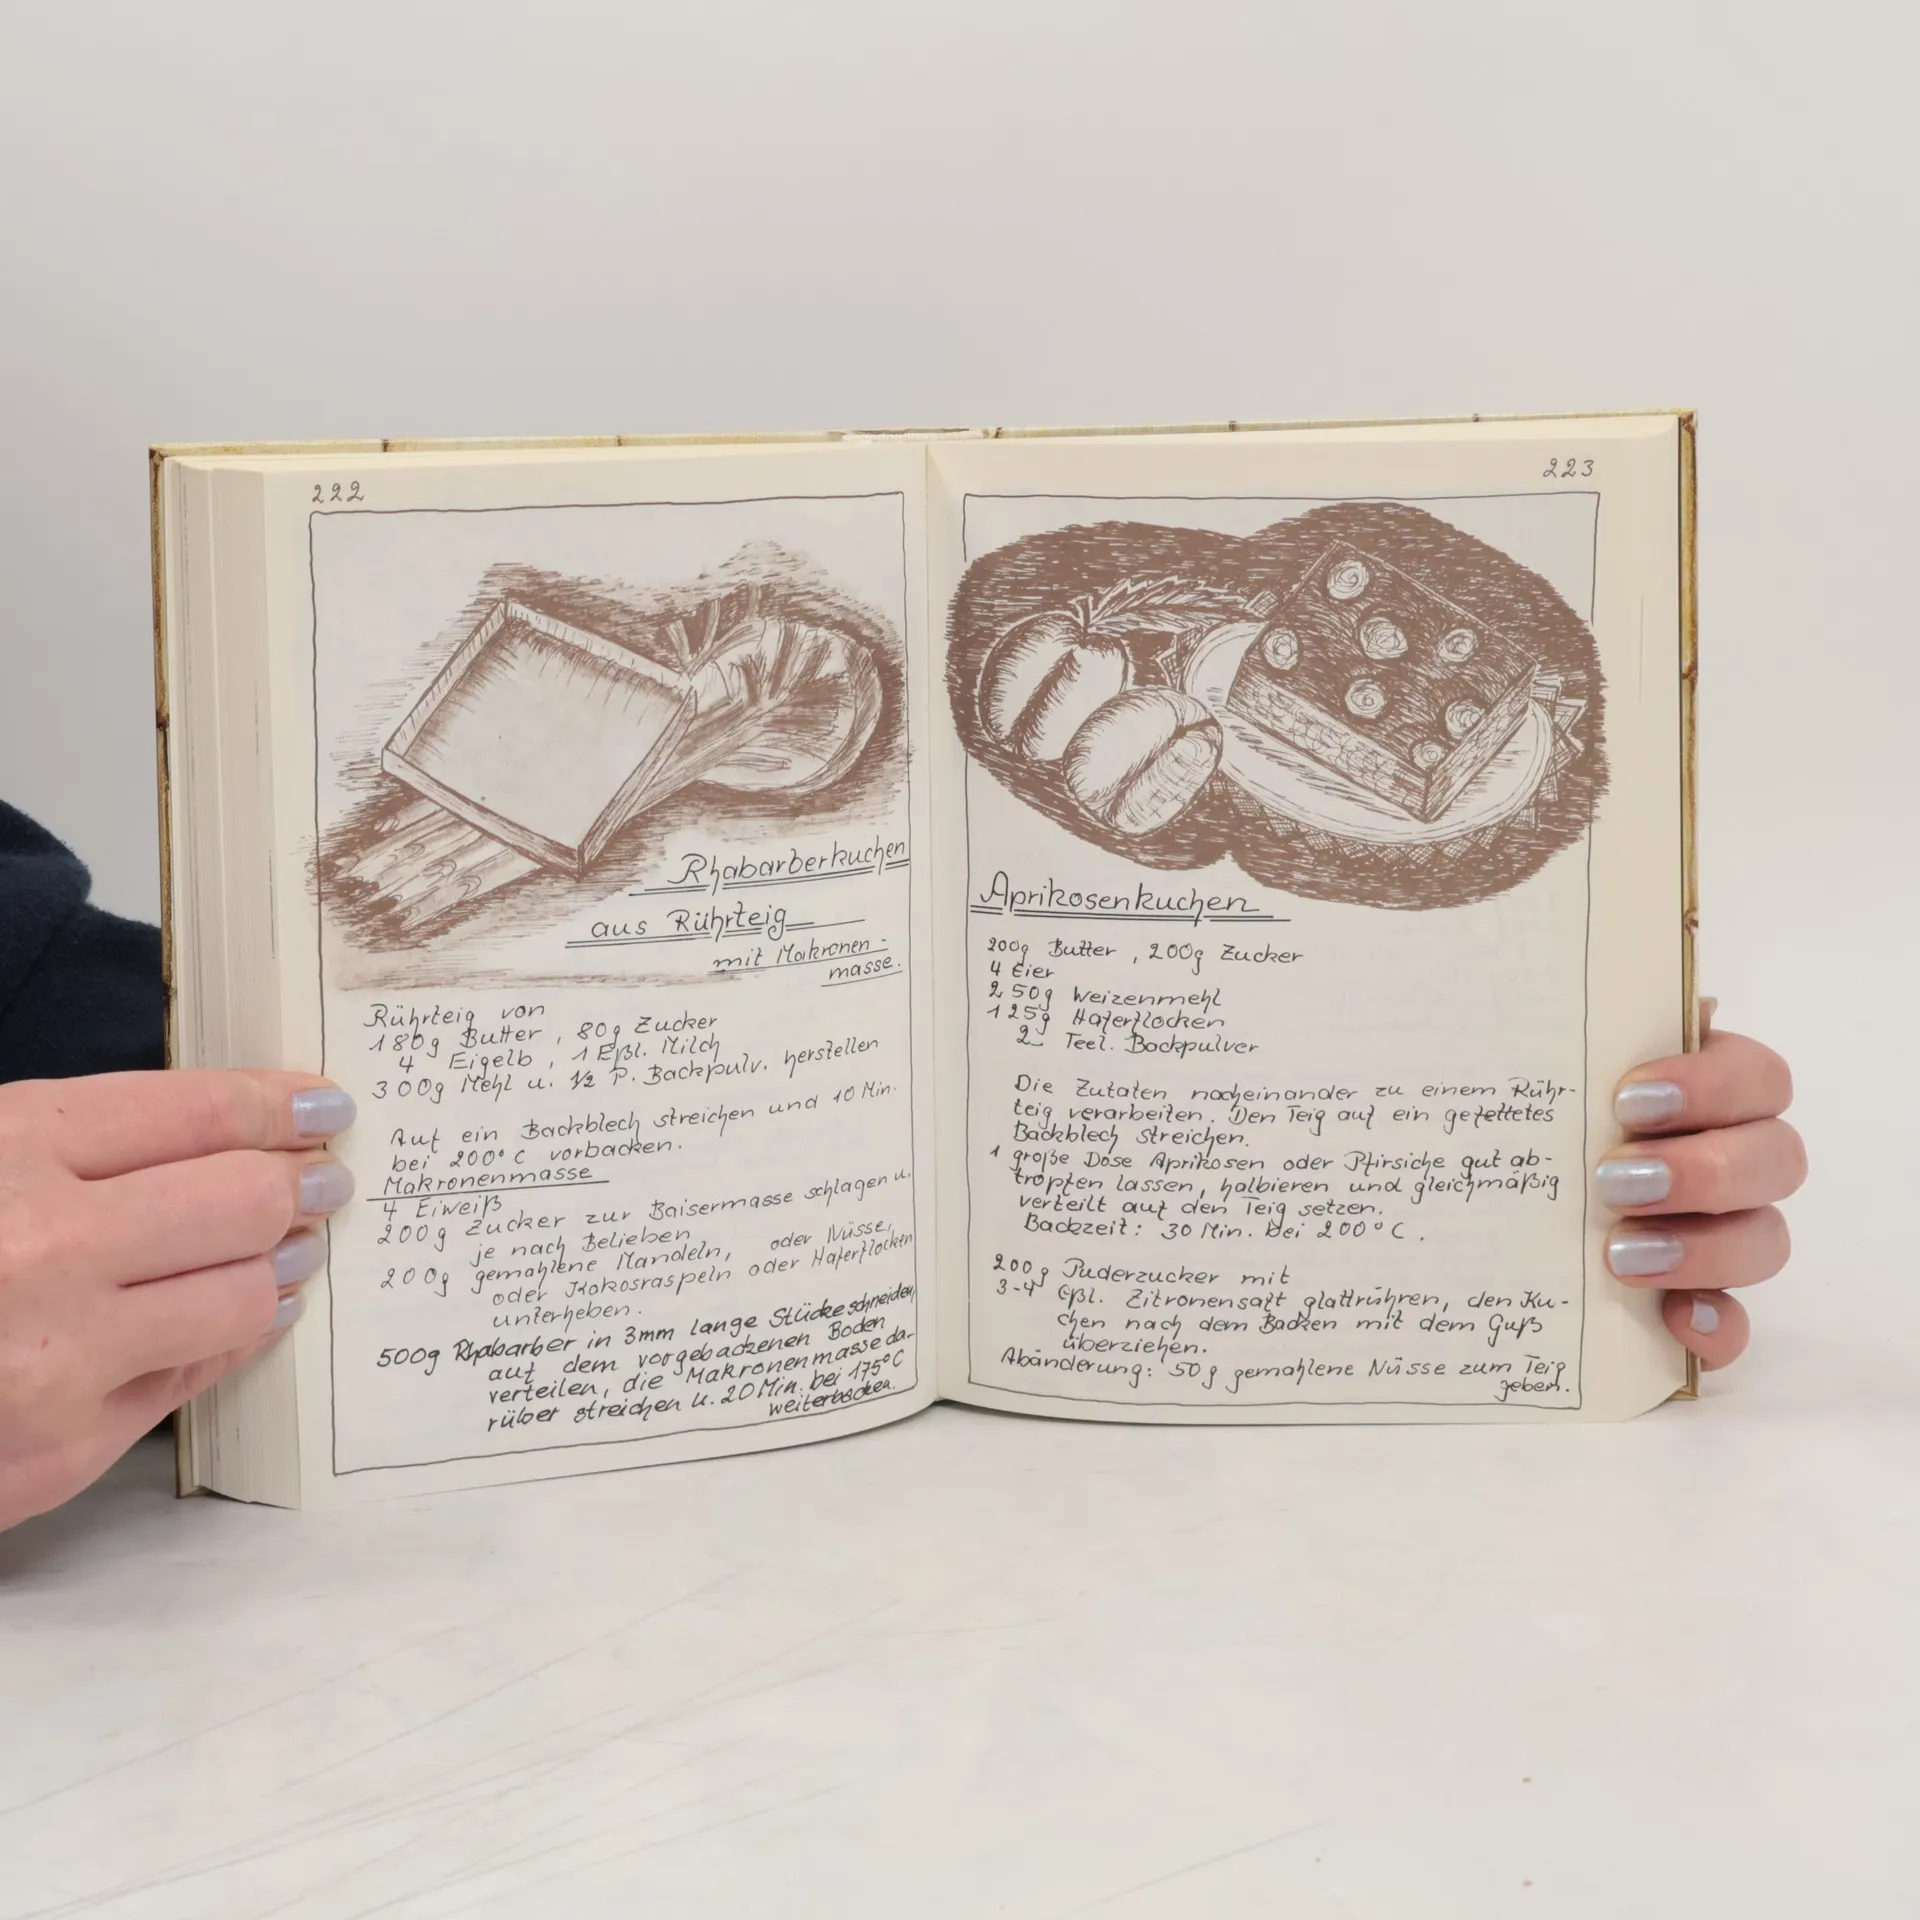 222
Rhabarberkuchen
aus Rührteig
mit Makronen-
masse.
Rührteig von
180g Butter, 80g Zucker
4 Eigelb, 1 Eßl. Milch
300g Mehl u. 1/2 P. Backpulv. herstellen
Auf ein Backblech streichen und 10 Min.
bei 200°C vorbacken.
Makronenmasse
4 Eiweiß
200g Zucker zur Baisermasse schlagen u.
je nach Belieben
200g gemahlene Mandeln, oder Nüsse,
oder Kokosraspeln oder Haferflocken
unterheben.
500g Rhabarber in 3mm lange Stücke schneiden,
auf dem vorgebackenen Boden
verteilen, die Makronenmasse da-
rüber streichen u. 20 Min. bei 175°C
weiterbacken.
223
Aprikosenkuchen
200g Butter, 200g Zucker
4 Eier
250g Weizenmehl
125g Haferflocken
2 Teel. Backpulver
Die Zutaten nacheinander zu einem Rühr-
teig verarbeiten. Den Teig auf ein gefettetes
Backblech streichen.
1 große Dose Aprikosen oder Pfirsiche gut ab-
tropfen lassen, halbieren und gleichmäßig
verteilt auf den Teig setzen.
Backzeit: 30 Min. bei 200°C.
200g Puderzucker mit
3-4 Eßl. Zitronensaft glattrühren, den Ku-
chen nach dem Backen mit dem Guß
überziehen.
Abänderung: 50g gemahlene Nüsse zum Teig
geben.